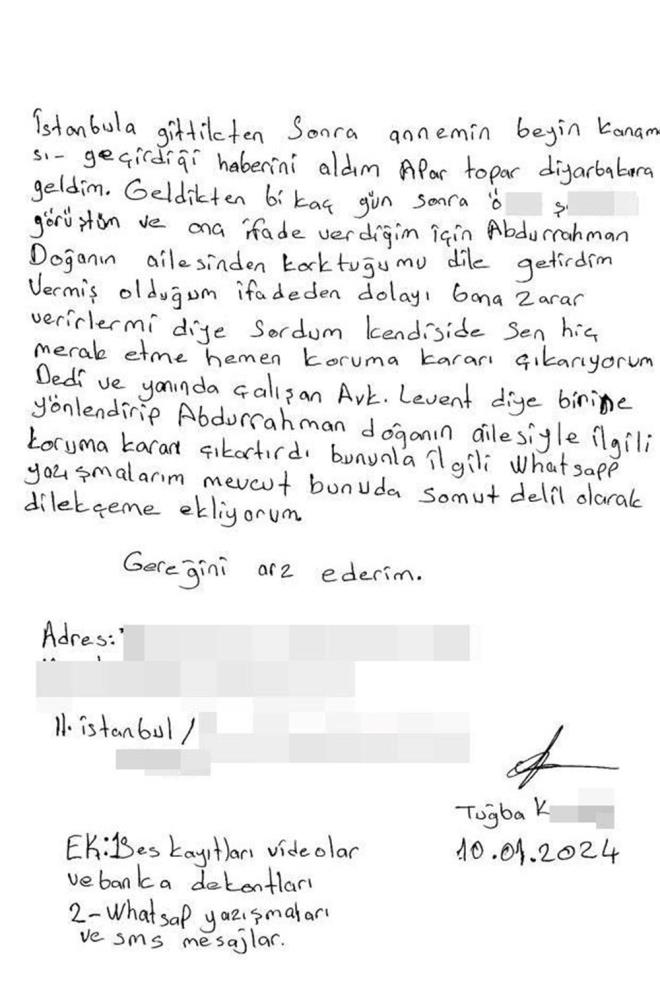 İstanbula gittikten Sonra annemin beyin kanama
sı- geçirdiği haberini aldım Apar topar diyarbakıra
geldim. Geldikten bi kaç gün sonra Ö Ş
görüştüm ve ona ifade verdiğim için Abdurrahman
Doğanın ailesinden korktuğumu dile getirdim
Vermiş olduğum ifadeden dolayı bana Zarar
verirlermi diye Sordum kendiside Sen hiç
merak etme hemen koruma kararı çıkarıyorum
Dedi ve yanında çalışan Avk. Levent diye birine
yönlendirip Abdurrahman doğanın ailesiyle ilgili
koruma kararı çıkartırdı bununla ilgili Whatsapp
yazışmalarım mevcut bunuda somut delil olarak
dilekçeme ekliyorum
Gereğini arz ederim.
Adres:
İl. istanbul /
Tuğba K
10.01.2024
EK:1Ses kayıtları videolar
ve banka dekontları
2-Whatsap yazışmaları
ve sms mesajlar.